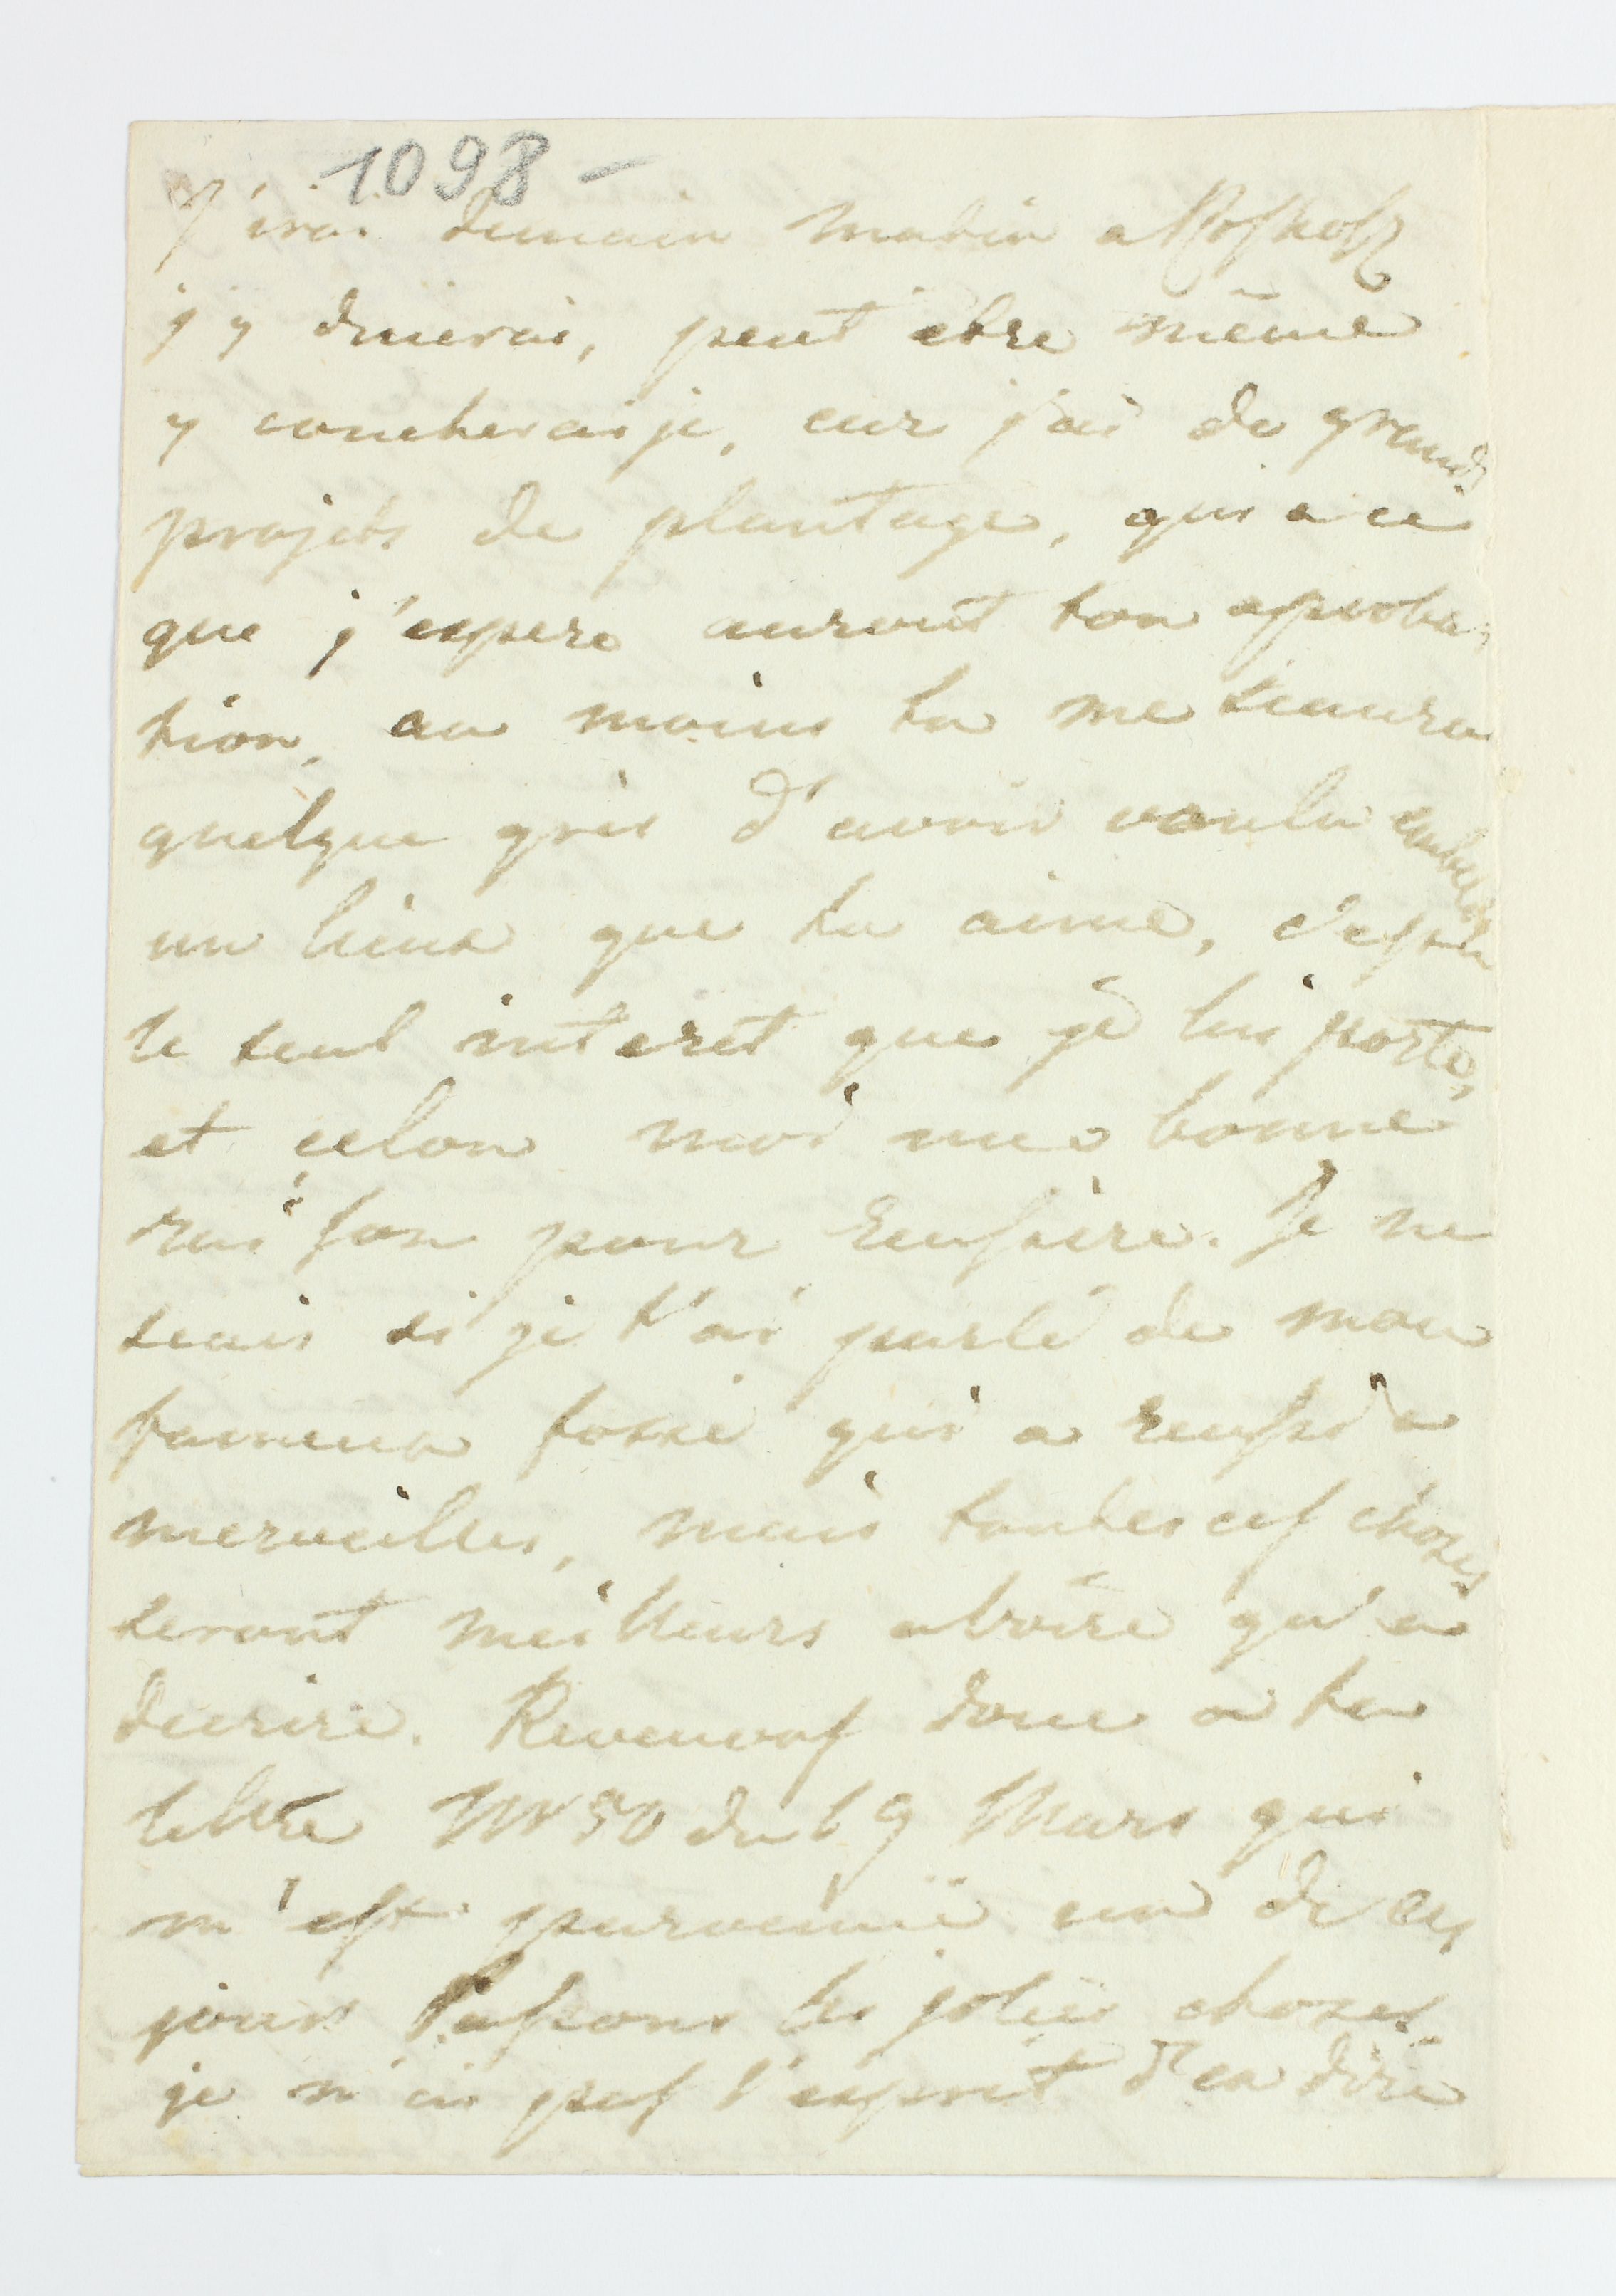 1098 –
J'irai demain matin a Rosholz
j'y dinerai, peut etre même
y coucheraije, car j'ai de grands
projets de plantage, qui a ce
que j'espere auront ton aproba-
tion, au moins tu me sauras
quelque gré d'avoir voulu embellir
un lieux que tu aime, c'est la
le seul interet que je lui porte,
et celon moi une bonne
raison pour reussire. Je ne
sais si je t'ai parlé de mon
fameux fossé qui a reussi a
merveilles, mais toutes ces choses
seront meilleurs a voire qu'a
decrire. Revenons donc a ta
lettre Nr 50 du 19 Mars qui
m'est parvenüe un de ces
jours Passons les jolies choses
je n'ai pas l'esprit d'en dire